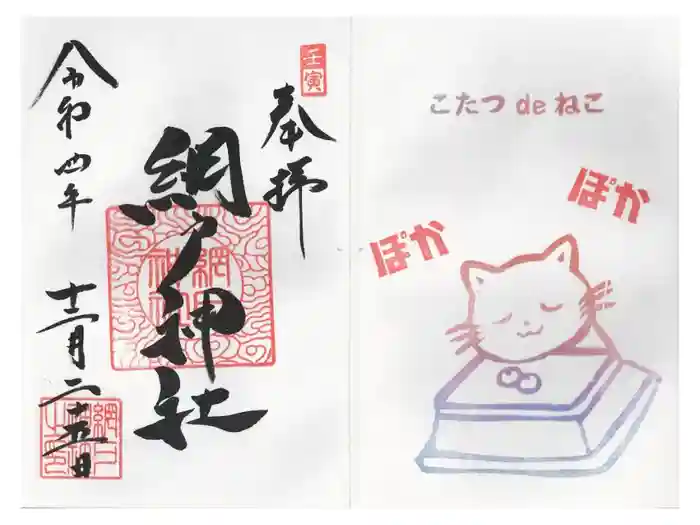 壬寅
奉拝
網戸神社
令和四年
十二月二十五日
こたつ de ねこ
ぽか
ぽか